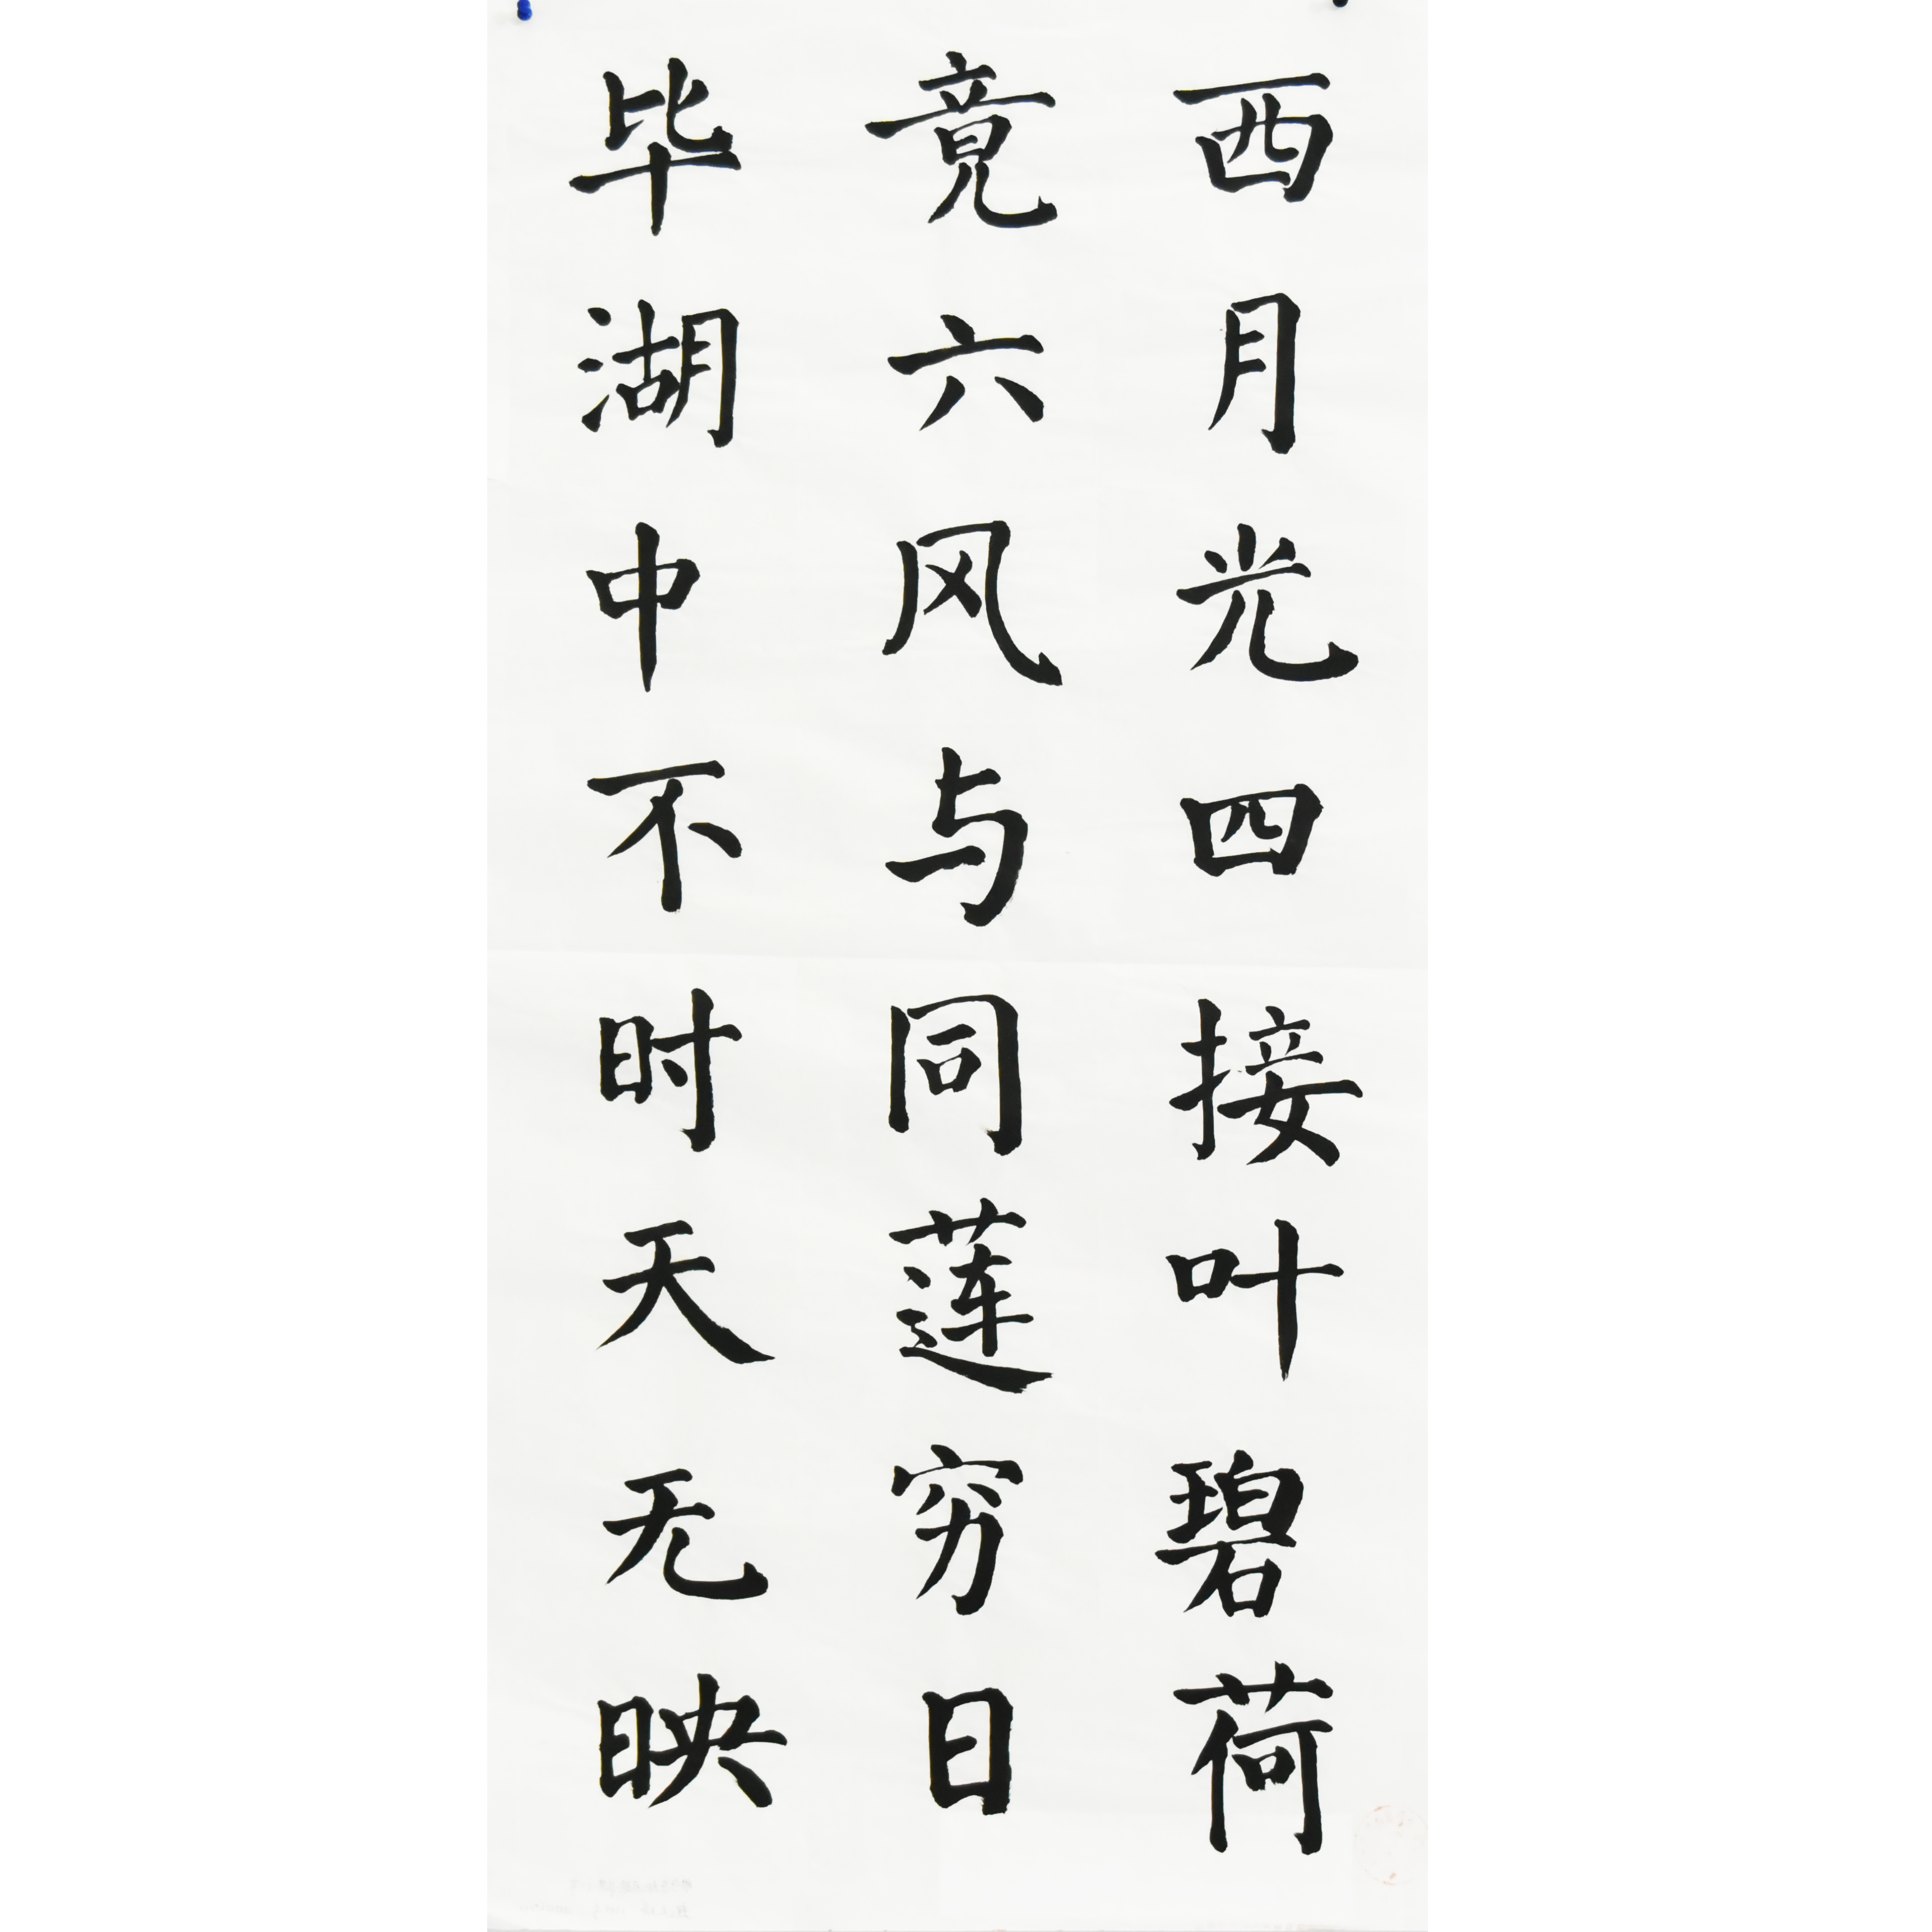 毕竟西
湖六月
中风光
不与四
时同接
天莲叶
无穷碧
映日荷